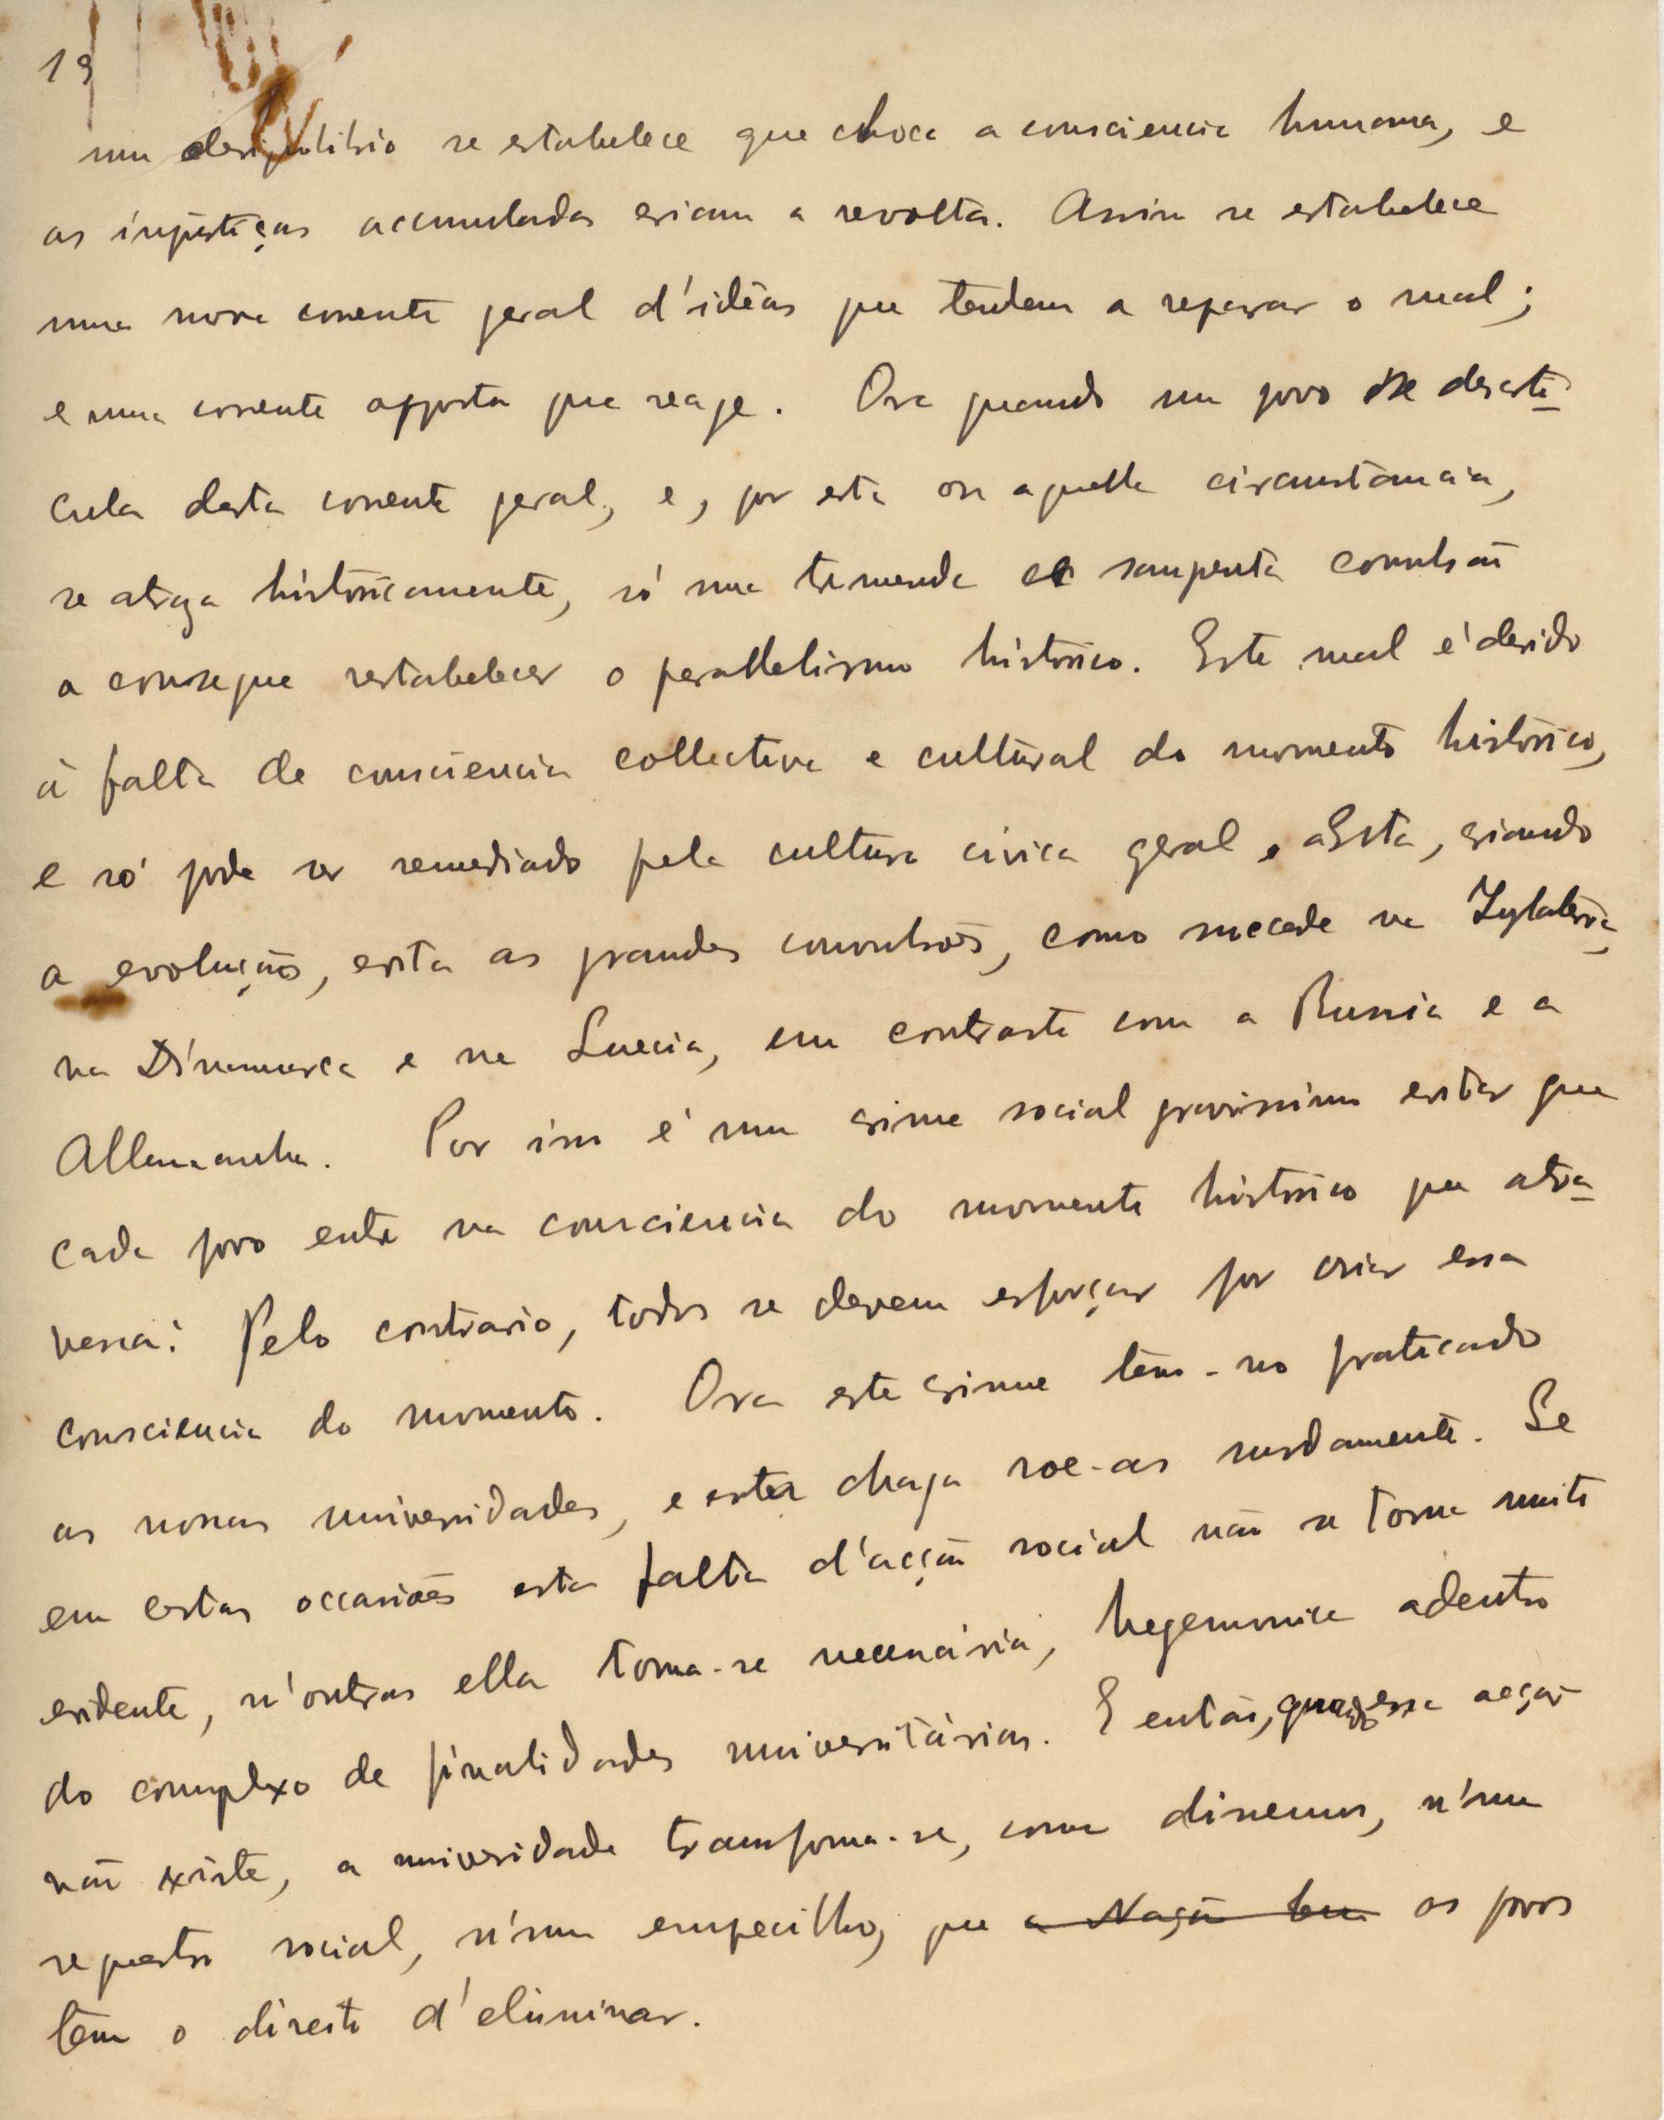 19
um desiquilibrio se estabelece que choca a consciencia humana, e
as injustiças accumuladas criam a revolta. Assim se estabelece
uma nova corrente geral d'idêas que tendem a reparar o mal;
e uma corrente opposta que reage. Ora quando um povo se desarti-
cula desta corrente geral, e, por esta ou aquella circumstancia,
se atraza historicamente, só uma tremenda e sangrenta convulsão
a consegue restabelecer o parallelismo historico. Este mal é devido
á falta de consciencia collectiva e cultural do momento historico,
e só pode ser remediado pela cultura civica geral. Esta, criando
a evolução, evita as grandes convulsões, como succede na Inglaterra,
na Dinamarca e na Suecia, em contraste com a Russia e a
Allemanha. Por isso é um crime social gravissimo evitar que
cada povo entre na consciencia do momento historico que atra-
vessa: Pelo contrario, todos se devem esforçar por criar essa
consciencia do momento. Ora este crime tem-no praticado
as nossas universidades, e esta chaga roe-as surdamente. Se
em certas occasiões esta falta d'acção social não se torna muito
evidente, n'outras ella torna-se necessária, hegemonica adentro
do complexo de finalidades universitárias. E então, quando essa acção
não existe, a universidade transforma-se, como dissemos, n'um
sequestro social, n'um empecilho, que a Nação tem os povos
têm o direito d'eliminar.